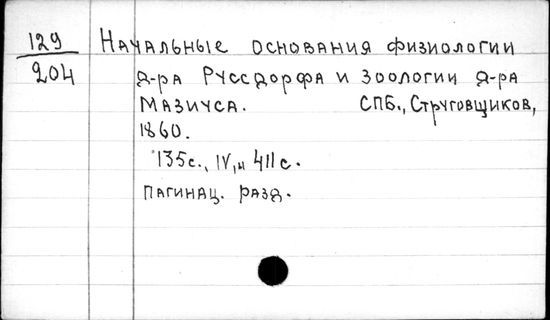 129
204
Начальные основания физиологии
д-ра Руссдорфа и зоологии д-ра
Мазиуса. СПБ., Струговщиков,
1860.
135с., IV, и 411 с.
пагинац. разд.